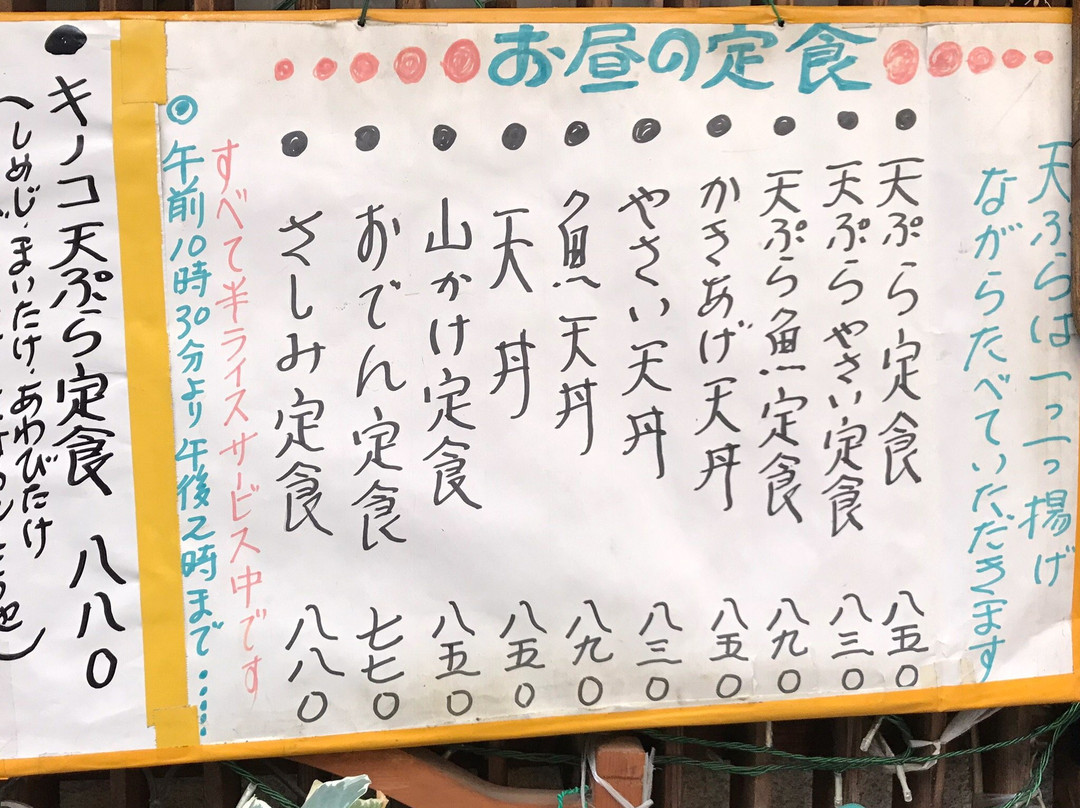 お昼の定食
天ぷらは一つ一つ揚げ
ながらたべていただきます
天ぷら定食 八五〇
天ぷらやさい定食 八三〇
天ぷら魚定食 八九〇
かきあげ天丼 八五〇
やさい天丼 八三〇
魚天丼 八九〇
天丼 八五〇
山かけ定食 八五〇
おでん定食 七七〇
さしみ定食 八八〇
すべて半ライスサービス中です
◎午前10時30分より午後2時まで……
キノコ天ぷら定食 八八〇
(しめじ・まいたけ・あわびたけ